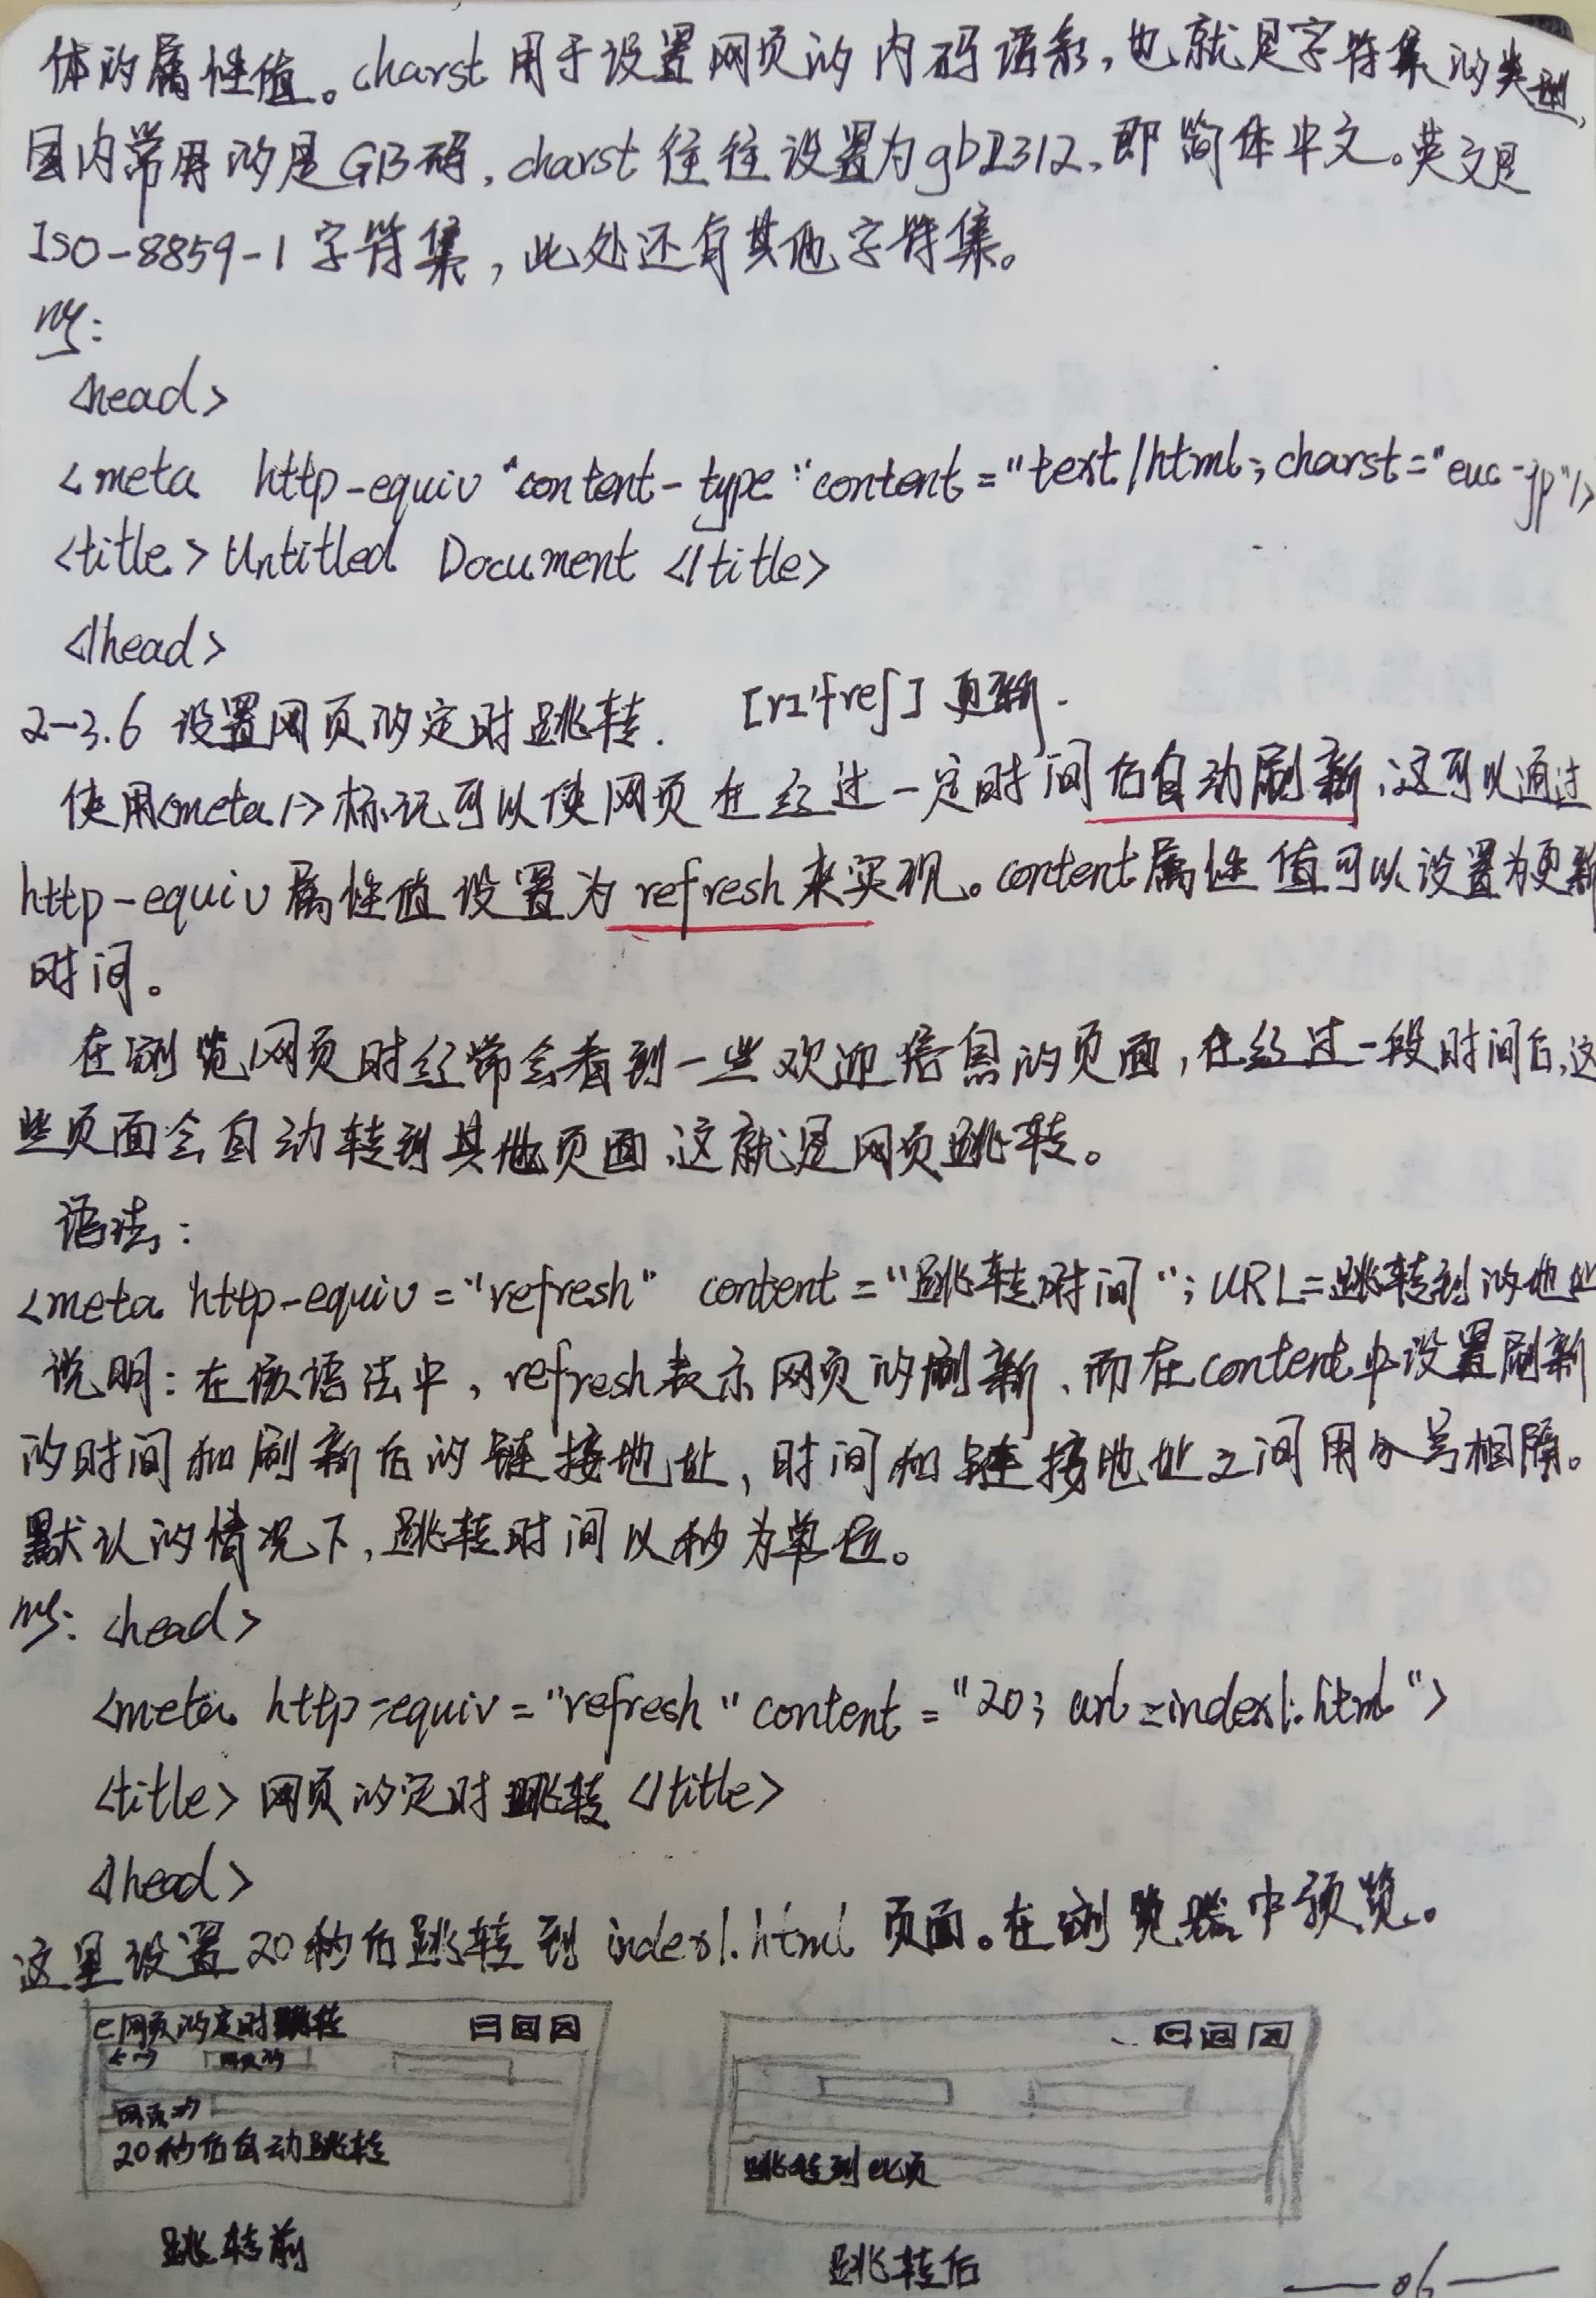 体的属性值。charst 用于设置网页的内码语系,也就是字符集的类型,
国内常用的是GB码,charst 往往设置为gb2312,即简体中文。英文是
ISO-8859-1字符集,此处还有其他字符集。
<head>
<meta http-equiv "content-type" content="text/html; charst="euc-jp"/>
<title>Untitled Document </title>
</head>
2-3.6 设置网页的定时跳转. [rɪ'freʃ] 更新.
使用<meta/>标记可以使网页在经过一定时间后自动刷新,这可以通过
http-equiv属性值设置为refresh来实现。content属性值可以设置为更新
时间。
在浏览网页时经常会看到一些欢迎信息的页面,在经过一段时间后,这
些页面会自动转到其他页面,这就是网页跳转。
语法:
<meta http-equiv="refresh" content="跳转时间"; URL=跳转到的地址
说明:在该语法中,refresh表示网页的刷新,而在content中设置刷新
的时间和刷新后的链接地址,时间和链接地址之间用分号相隔。
默认的情况下,跳转时间以秒为单位。
<head>
<meta http-equiv="refresh" content="20; url=index1.html">
<title>网页的定时跳转</title>
</head>
这里设置20秒后跳转到 index1.html 页面。在浏览器中预览。
e网页的定时跳转
←→ 网页的
20秒后自动跳转
跳转到此页
跳转前 跳转后
—06—